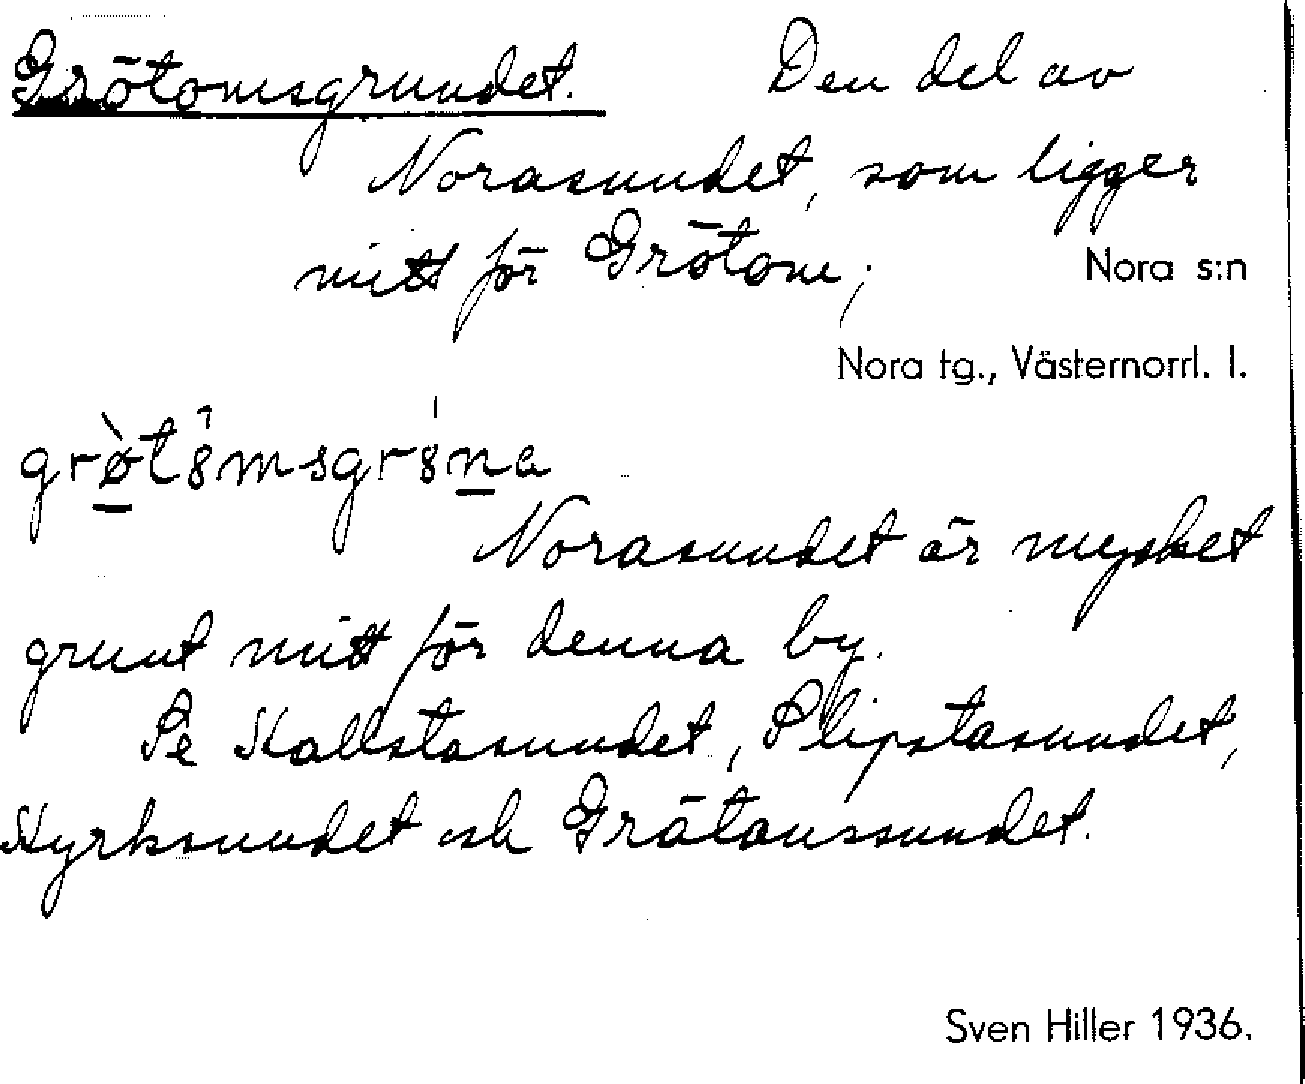 Grötomsgrundet. Den del av
Norasundet, som ligger
mitt för Grötom;
Nora s:n
Nora tg., Västernorrl. l.
grø̀tȣmsgrȣna
Norasundet är mycket
grunt mitt för denna by.
Se Kallstasundet, Slipstasundet,
Kyrksundet och Grätomssundet.
Sven Hiller 1936.